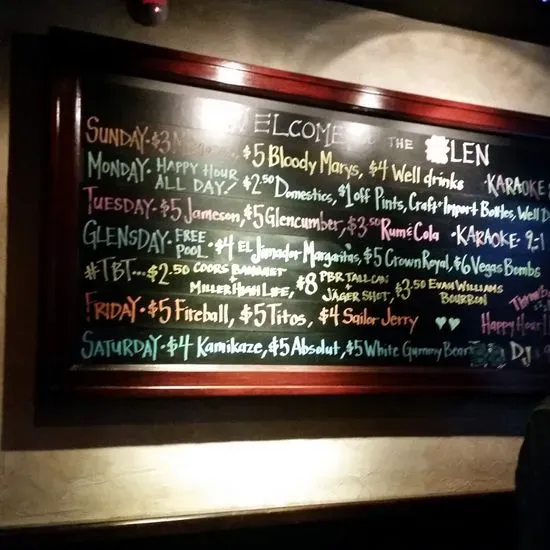 WELCOME TO THE GLEN
SUNDAY·$3 $5 Bloody Marys, $4 Well drinks KARAOKE
MONDAY· HAPPY HOUR ALL DAY! $2.50 Domestics, $1 off Pints, Craft & Import Bottles, Well
TUESDAY·$5 Jameson, $5 Glencumber, $3.50 Rum & Cola -KARAOKE· 9-1
GLENSDAY· FREE POOL· $4 EL Jimador Margaritas, $5 Crown Royal, $6 Vegas Bombs
#TBT...$2.50 COORS BANQUET + MILLER HIGH LIFE, $8 PBR TALLCAN + JÄGER SHOT, $3.50 EVAN WILLIAMS BOURBON
FRIDAY·$5 Fireball, $5 Titos, $4 Sailor Jerry Happy Hour
SATURDAY·$4 Kamikaze, $5 Absolut, $5 White Gummy Bear DJ